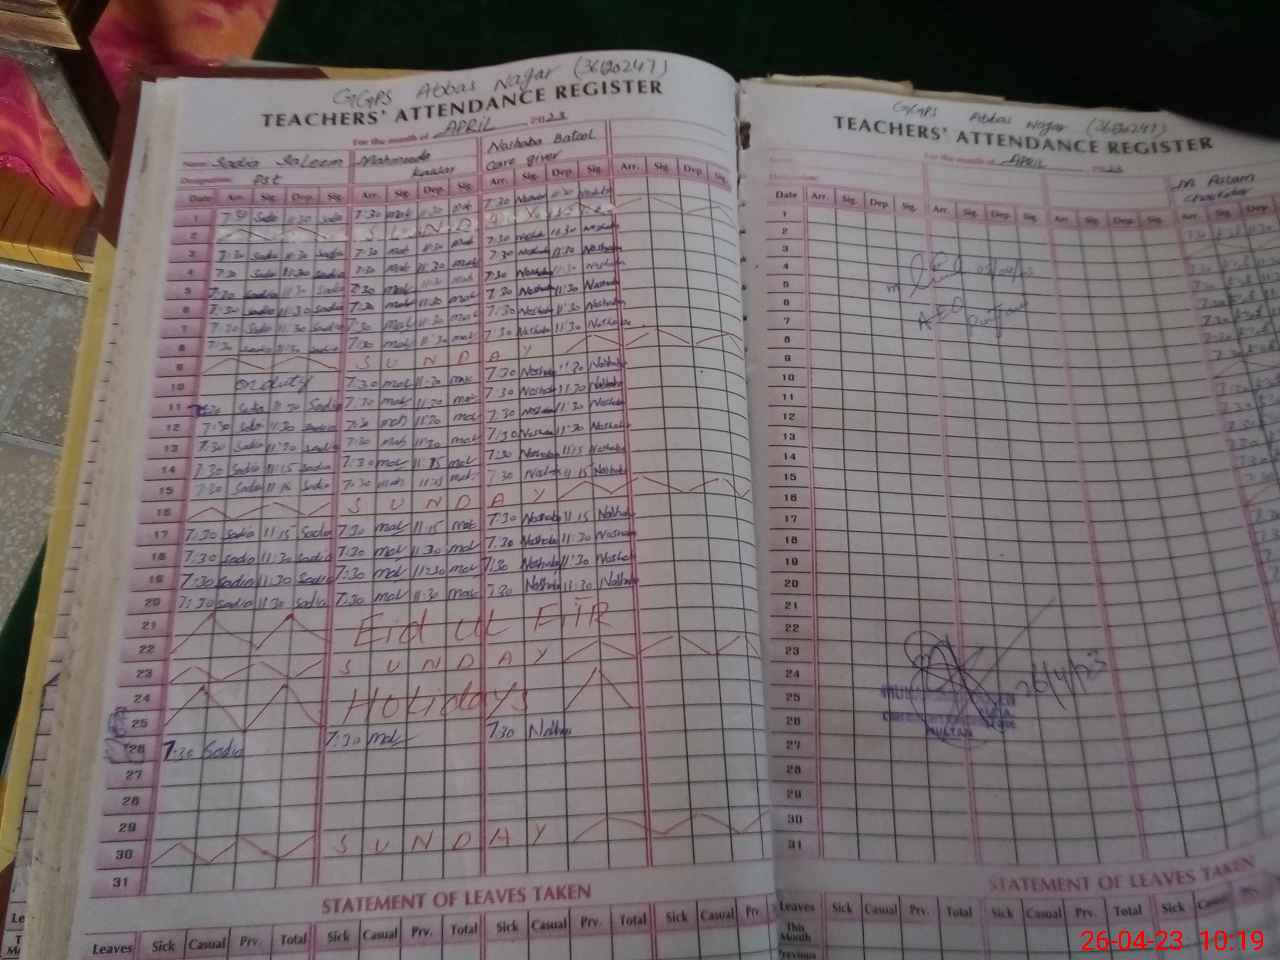 GGPS Abbas Nagar (36120247)
TEACHERS' ATTENDANCE REGISTER
For the month of APRIL 2023
Name Sadia Saleem Mahmooda Kausar Noshaba Batool
Designation Pst Care giver
Date Arr. Sig. Dep. Sig. Arr. Sig. Dep. Sig. Arr. Sig. Dep. Sig. Arr. Sig. Dep. Sig.
1 7:30 Sadia 11:30 Sadia 7:30 mah 11:30 mah 7:30 Noshaba 11:30 Noshaba
2 SUNDAY
3 7:30 Sadia 11:30 Sadia 7:30 mah 11:30 mah 7:30 Noshaba 11:30 Noshaba
4 7:30 Sadia 11:30 Sadia 7:30 mah 11:30 mah 7:30 Noshaba 11:30 Noshaba
5 7:30 Sadia 11:30 Sadia 7:30 mah 11:30 mah 7:30 Noshaba 11:30 Noshaba
6 7:30 Sadia 11:30 Sadia 7:30 mah 11:30 mah 7:30 Noshaba 11:30 Noshaba
7 7:30 Sadia 11:30 Sadia 7:30 mah 11:30 mah 7:30 Noshaba 11:30 Noshaba
8 7:30 Sadia 11:30 Sadia 7:30 mah 11:30 mah 7:30 Noshaba 11:30 Noshaba
9 SUNDAY
10 on duty 7:30 mah 11:30 mah 7:30 Noshaba 11:30 Noshaba
11 Sadia 11:30 Sadia 7:30 mah 11:30 mah 7:30 Noshaba 11:30 Noshaba
12 7:30 Sadia 11:30 Sadia 7:30 mah 11:30 mah 7:30 Noshaba 11:30 Noshaba
13 7:30 Sadia 11:30 Sadia 7:30 mah 11:30 mah 7:30 Noshaba 11:30 Noshaba
14 7:30 Sadia 11:15 Sadia 7:30 mah 11:15 mah 7:30 Noshaba 11:15 Noshaba
15 7:30 Sadia 11:15 Sadia 7:30 mah 11:15 mah 7:30 Noshaba 11:15 Noshaba
16 SUNDAY
17 7:30 Sadia 11:15 Sadia 7:30 mah 11:15 mah 7:30 Noshaba 11:15 Noshaba
18 7:30 Sadia 11:30 Sadia 7:30 mah 11:30 mah 7:30 Noshaba 11:30 Noshaba
19 7:30 Sadia 11:30 Sadia 7:30 mah 11:30 mah 7:30 Noshaba 11:30 Noshaba
20 7:30 Sadia 11:30 Sadia 7:30 mah 11:30 mah 7:30 Noshaba 11:30 Noshaba
21 Eid ul FiTR
22
23 SUNDAY
24 Holidays
25
26 7:30 Sadia 7:30 mah 7:30 Noshaba
27
28
29
30 SUNDAY
31
STATEMENT OF LEAVES TAKEN
Leaves Sick Casual Prv. Total Sick Casual Prv. Total Sick Casual Prv. Total Sick Casual Prv.
GGPS Abbas Nagar (36120247)
TEACHERS' ATTENDANCE REGISTER
For the month of APRIL
M Aslam
Date Arr. Sig. Dep. Sig. Arr. Sig. Dep. Sig. Arr. Sig. Dep. Sig. Arr. Sig. Dep.
1
2
3
4
5
6
7
8
9
10
11
12
13
14
15
16
17
18
19
20
21
22
23
24
25 26/4/23
26
27 MULTAN
28
29
30
31
STATEMENT OF LEAVES TAKEN
Leaves Sick Casual Prv. Total Sick Casual Prv. Total Sick Casual
This Month
Previous
26-04-23 10:19